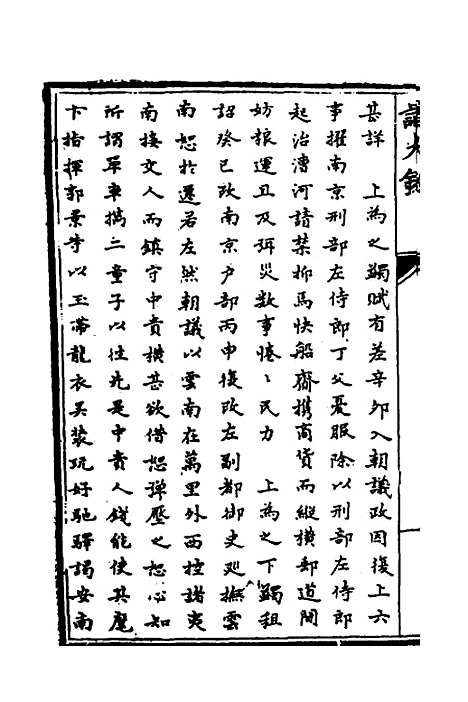 甚詳　上為之蠲賦有差辛卯入朝議政因復上六
事擢南京刑部左侍郎丁父憂服除以刑部左侍郎
起治漕河請禁柳馬快船齎携商貨而縱橫郵道間
妨粮運且及弭災數事惓〻民力　上為之下蠲租
詔癸巳改南京户部丙申復改左副都御史廵撫雲
南恕於還若左然朝議以雲南在萬里外西控諸夷
南接交人而鎮守中貴横甚欲借恕彈壓之恕心知
所謂单車携二童子以往先是中貴人錢能使其麾
下指揮郭景等以玉帶龍衣吴裝玩好馳驛謁安南